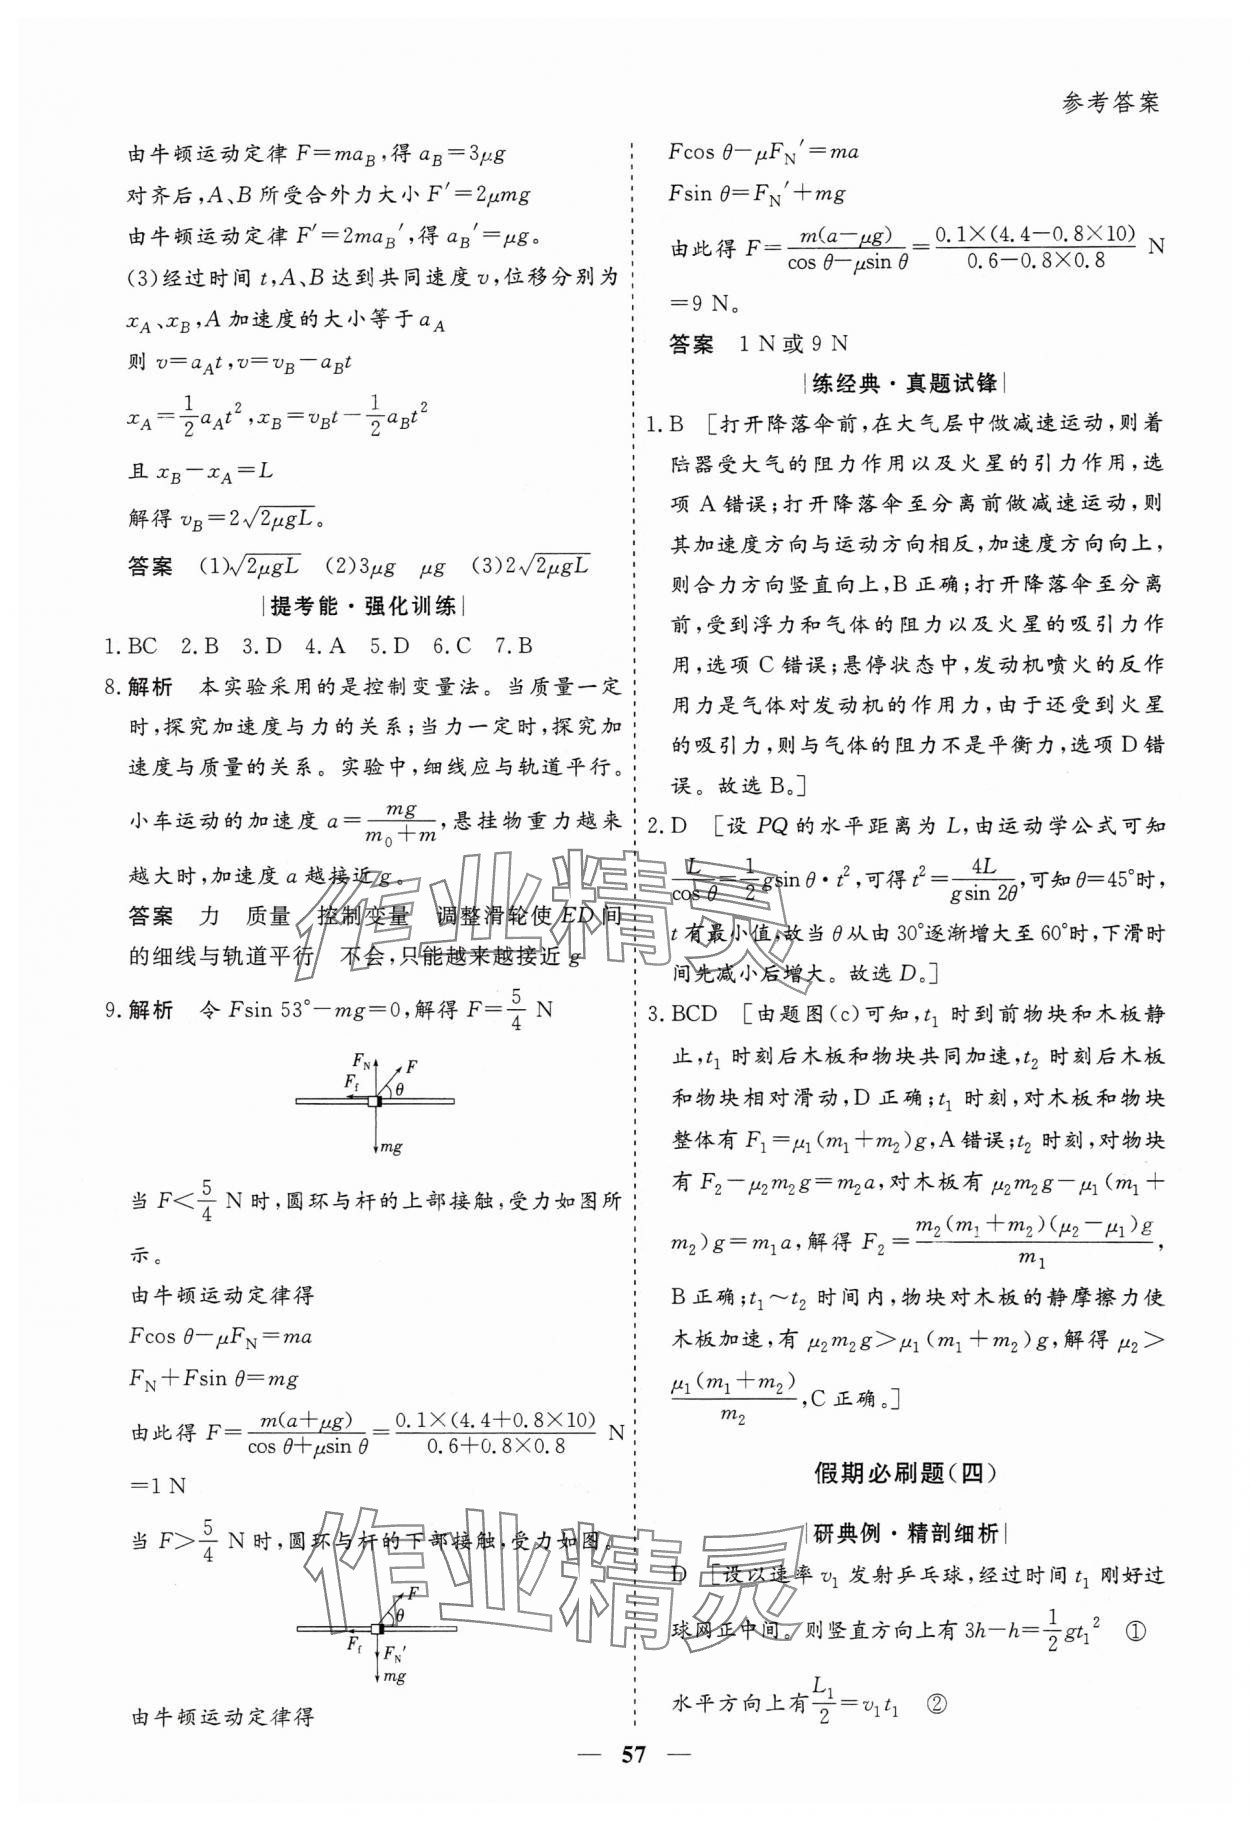 参考答案
由牛顿运动定律 F=ma_B,得 a_B=3μg
对齐后,A、B 所受合外力大小 F′=2μmg
由牛顿运动定律 F′=2ma_B′,得 a_B′=μg。
(3)经过时间 t,A、B 达到共同速度 v,位移分别为
x_A、x_B,A 加速度的大小等于 a_A
则 v=a_At,v=v_B−a_Bt
x_A=\frac{1}{2}a_At²,x_B=v_Bt−\frac{1}{2}a_Bt²
且 x_B−x_A=L
解得 v_B=2√(2μgL)。
答案 (1)√(2μgL) (2)3μg μg (3)2√(2μgL)
|提考能·强化训练|
1.BC 2.B 3.D 4.A 5.D 6.C 7.B
8.解析 本实验采用的是控制变量法。当质量一定
时,探究加速度与力的关系;当力一定时,探究加
速度与质量的关系。实验中,细线应与轨道平行。
小车运动的加速度 a=\frac{mg}{m₀+m},悬挂物重力越来
越大时,加速度 a 越接近 g。
答案 力 质量 控制变量 调整滑轮使 ED 间
的细线与轨道平行 不会,只能越来越接近 g
9.解析 令 Fsin 53°−mg=0,解得 F=\frac{5}{4} N
F_N F
F_f θ
mg
当 F<\frac{5}{4} N 时,圆环与杆的上部接触,受力如图所
示。
由牛顿运动定律得
Fcos θ−μF_N=ma
F_N+Fsin θ=mg
由此得 F=\frac{m(a+μg)}{cos θ+μsin θ}=\frac{0.1×(4.4+0.8×10)}{0.6+0.8×0.8} N
=1 N
当 F>\frac{5}{4} N 时,圆环与杆的下部接触,受力如图。
F
θ
F_f F_N′
mg
由牛顿运动定律得
Fcos θ−μF_N′=ma
Fsin θ=F_N′+mg
由此得 F=\frac{m(a−μg)}{cos θ−μsin θ}=\frac{0.1×(4.4−0.8×10)}{0.6−0.8×0.8} N
=9 N。
答案 1 N 或 9 N
|练经典·真题试锋|
1.B [打开降落伞前,在大气层中做减速运动,则着
陆器受大气的阻力作用以及火星的引力作用,选
项 A 错误;打开降落伞至分离前做减速运动,则
其加速度方向与运动方向相反,加速度方向向上,
则合力方向竖直向上,B 正确;打开降落伞至分离
前,受到浮力和气体的阻力以及火星的吸引力作
用,选项 C 错误;悬停状态中,发动机喷火的反作
用力是气体对发动机的作用力,由于还受到火星
的吸引力,则与气体的阻力不是平衡力,选项 D 错
误。故选 B。]
2.D [设 PQ 的水平距离为 L,由运动学公式可知
\frac{L}{cos θ}=\frac{1}{2}gsin θ·t²,可得 t²=\frac{4L}{gsin 2θ},可知 θ=45°时,
t 有最小值,故当 θ 从由 30°逐渐增大至 60°时,下滑时
间先减小后增大。故选 D。]
3.BCD [由题图(c)可知,t₁ 时到前物块和木板静
止,t₁ 时刻后木板和物块共同加速,t₂ 时刻后木板
和物块相对滑动,D 正确;t₁ 时刻,对木板和物块
整体有 F₁=μ₁(m₁+m₂)g,A 错误;t₂ 时刻,对物块
有 F₂−μ₂m₂g=m₂a,对木板有 μ₂m₂g−μ₁(m₁+
m₂)g=m₁a,解得 F₂=\frac{m₂(m₁+m₂)(μ₂−μ₁)g}{m₁},
B 正确;t₁~t₂ 时间内,物块对木板的静摩擦力使
木板加速,有 μ₂m₂g>μ₁(m₁+m₂)g,解得 μ₂>
\frac{μ₁(m₁+m₂)}{m₂},C 正确。]
假期必刷题(四)
|研典例·精剖细析|
D [设以速率 v₁ 发射乒乓球,经过时间 t₁ 刚好过
球网正中间。则竖直方向上有 3h−h=\frac{1}{2}gt₁² ①
水平方向上有\frac{L₁}{2}=v₁t₁ ②
— 57 —
作业精灵
作业精灵